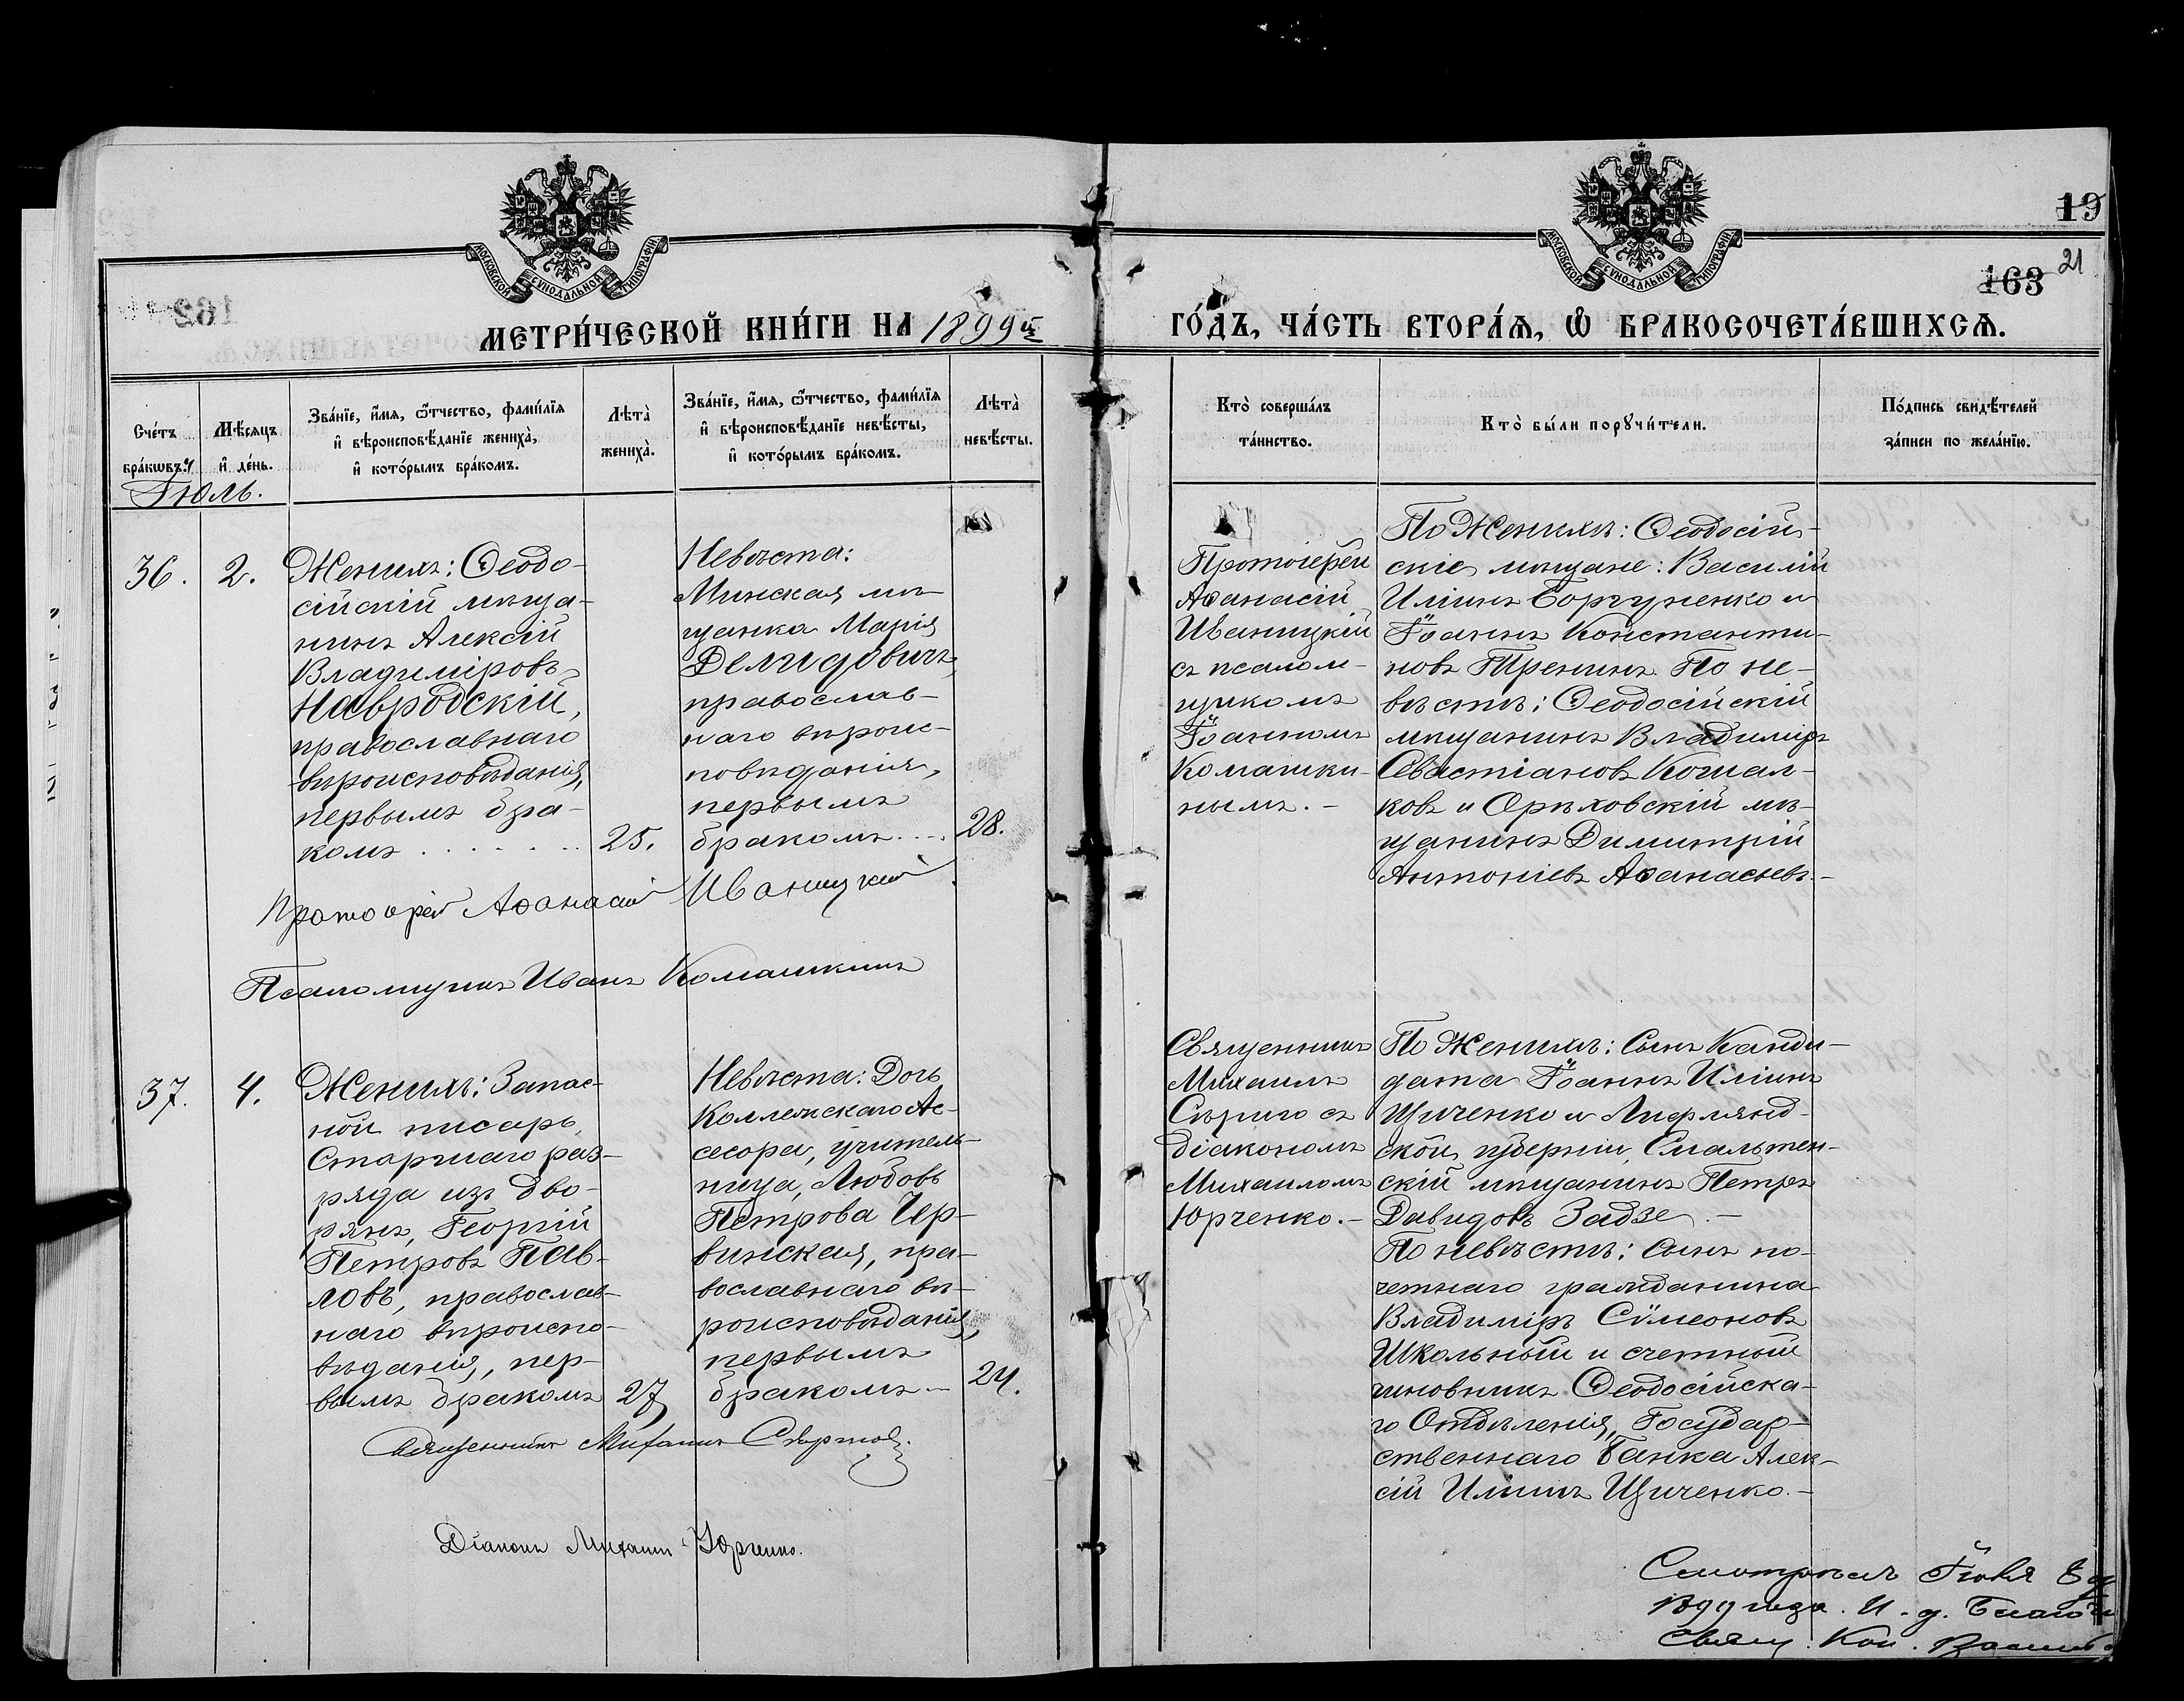 МОСКОВСКОЙ СУНОДАЛЬНОЙ ТИПОГРАФІИ
МОСКОВСКОЙ СУНОДАЛЬНОЙ ТИПОГРАФІИ
19
163
21
МЕТРИ́ЧЕСКОЙ КНИ́ГИ НА 1899й
ГО́ДЪ, ЧА́СТЬ ВТОРА́Я, Ѡ БРАКОСОЧЕТА́ВШИХСЯ.
Сче́тъ
бра́кωвъ.
Мѣ́сяцъ
и҆ де́нь.
Зва́нїе, и҆́мя, ѻ҆́тчество, фами́лїя
и҆ вѣроисповѣ́данїе жениха̀,
и҆ кото́рымъ бра́комъ.
Лѣта̀
жениха̀.
Зва́нїе, и҆́мя, ѻ҆́тчество, фами́лїя
и҆ вѣроисповѣ́данїе невѣ́сты,
и҆ кото́рымъ бра́комъ.
Лѣта̀
невѣ́сты.
Кто̀ соверша́лъ
та́инство.
Кто̀ бы́ли порꙋчи́тели.
По́дпись свидѣ́телей
за́писи по жела́нїю.
Іюль.
36.
2.
Женихъ: Ѳеодо-
сійскій мѣща-
нинъ Алексій
Владиміровъ
Навродскій,
православнаго
вѣроисповѣданія,
первымъ бра-
комъ . . . . . . .
25.
Невѣста:
Минская мѣ-
щанка Марія
Демидовичъ,
православ-
наго вѣроис-
повѣданія,
первымъ
бракомъ . . . .
28.
Протоіерей
Аѳанасій
Иваницкій
съ псалом-
щикомъ
Іоанномъ
Комашки-
нымъ. -
По Женихѣ: Ѳеодосій-
скіе мѣщане: Василій
Иліинъ Боргуненко и
Іоаннъ Константи-
новъ Тренинъ. По не-
вѣстѣ: Ѳеодосійскій
мѣщанинъ Владиміръ
Севастіановъ Кошал-
ковъ и Орѣховскій мѣ-
щанинъ Димитрій
Антоніевъ Аѳанасьевъ.-
Протоіерей Аѳанасій Иваницкій
Псаломщикъ Иванъ Комашкинъ
37.
4.
Женихъ: Запас-
ной писарь,
Старшаго раз-
ряда изъ дво-
рянъ, Георгій
Петровъ Пав-
ловъ, православ-
наго вѣроиспо-
вѣданія, пер-
вымъ бракомъ
27
Невѣста: Дочь
Коллежскаго Ас-
сесора, учитель-
ница, Любовь
Петрова Чер-
винская, пра-
вославнаго вѣ-
роисповѣданія,
первымъ
бракомъ -
24.
Священникъ
Михаилъ
Сѣриго съ
діакономъ
Михаиломъ
Юрченко. -
По Женихѣ: Сынъ Канди-
дата Іоаннъ Иліинъ
Щиченко и Лифлянд-
ской, губерніи,
скій мѣщанинъ Петръ
Давидовъ Задзе. -
По невѣстѣ: Сынъ по-
четнаго гражданина
Владиміръ Сѵмеоновъ
Школьный и счетный
чиновникъ Ѳеодосійска-
го Отдѣленія, Государ-
ственнаго Банка Алек-
сій Иліинъ Щиченко. -
Священникъ Михаилъ
Діаконъ Михаилъ Юрченко.
Смотрѣлъ Іюля
1899 года. И. д.
Свящ.